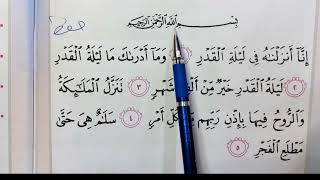 بِسْمِ اللَّهِ الرَّحْمَٰنِ الرَّحِيمِ
إِنَّا أَنزَلْنَاهُ فِي لَيْلَةِ الْقَدْرِ ١ وَمَا أَدْرَاكَ مَا لَيْلَةُ الْقَدْرِ
٢ لَيْلَةُ الْقَدْرِ خَيْرٌ مِّنْ شَهْرٍ ٣ تَنَزَّلُ الْمَلَائِكَةُ
وَالرُّوحُ فِيهَا بِإِذْنِ رَبِّهِم كُلِّ أَمْرٍ ٤ سَلَامٌ هِيَ حَتَّىٰ
مَطْلَعِ الْفَجْرِ ٥